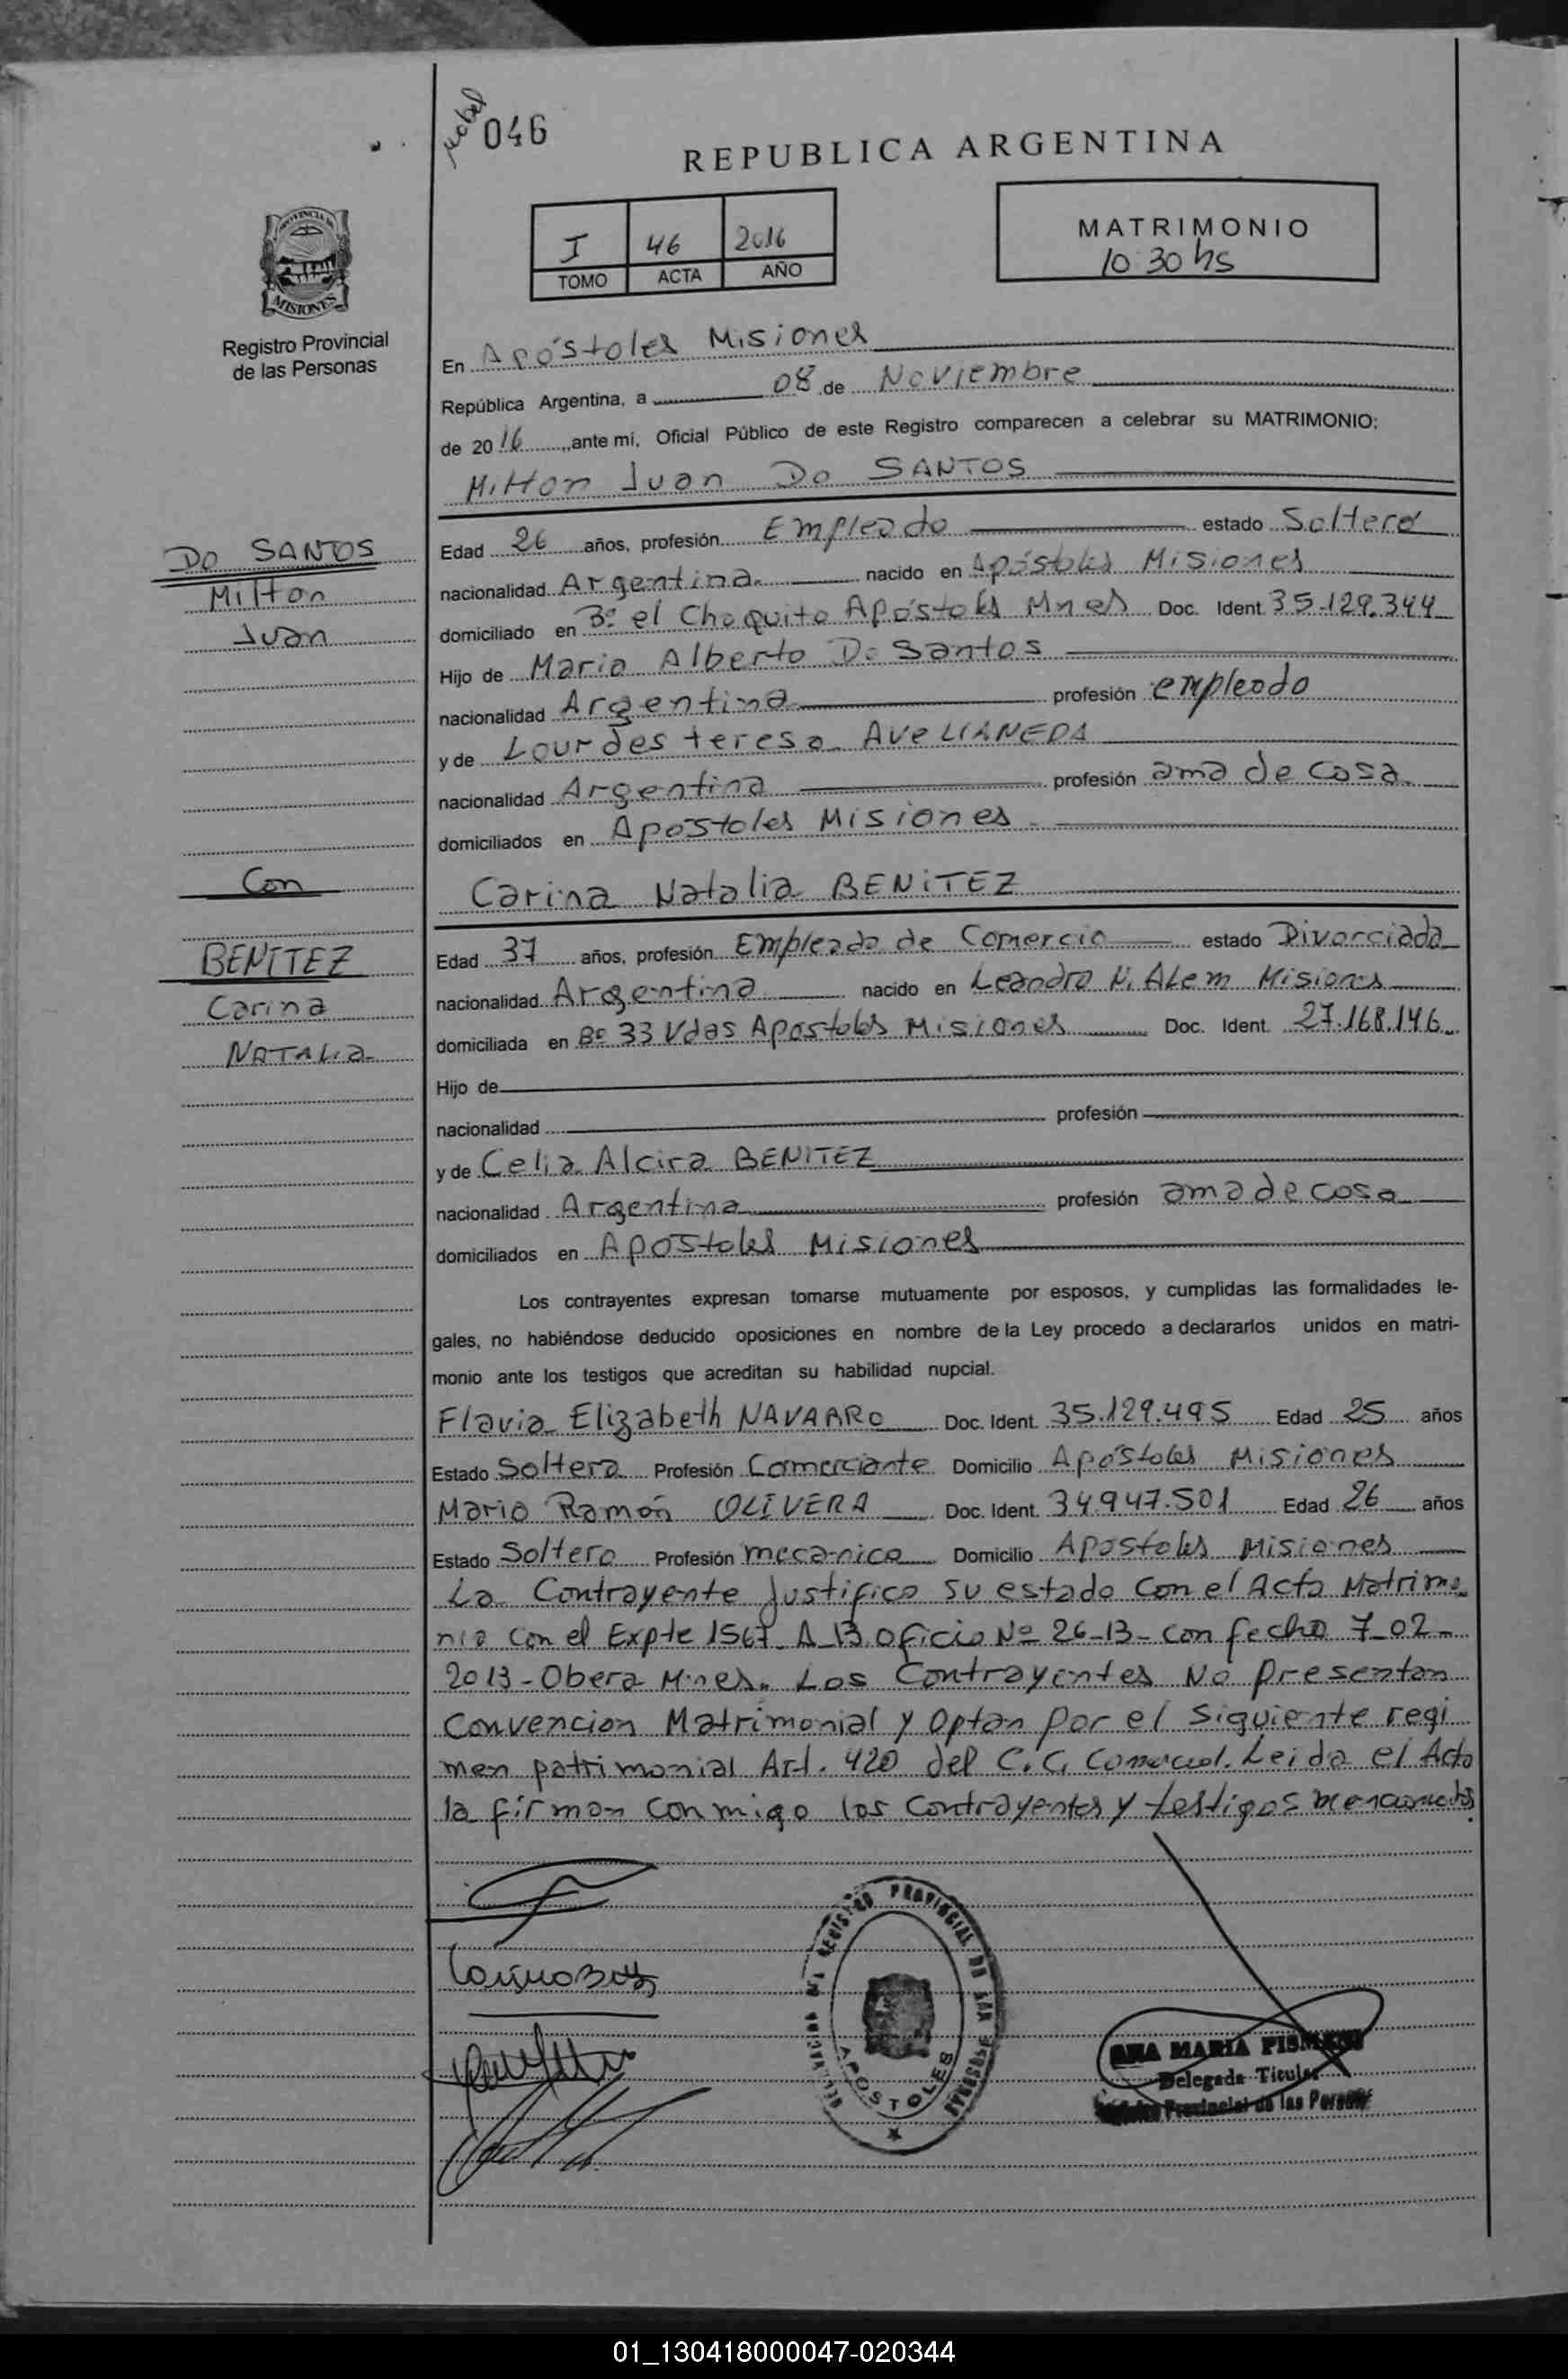 046
REPUBLICA ARGENTINA
I 46 2016
TOMO ACTA AÑO
MATRIMONIO
10:30 hs
PROVINCIA DE
MISIONES
Registro Provincial
de las Personas
En Apóstoles Misiones
República Argentina, a 08 de Noviembre
de 2016, ante mi, Oficial Público de este Registro comparecen a celebrar su MATRIMONIO:
Milton Juan Do SANTOS
Do SANTOS
Milton
Juan
Edad 26 años, profesión Empleado estado Soltero
nacionalidad Argentina nacido en Apóstoles Misiones
domiciliado en Bº el Chaquito Apóstoles Mnes Doc. Ident. 35.129.344
Hijo de Mario Alberto Do Santos
nacionalidad Argentina profesión empleado
y de Lourdes teresa AVELLANEDA
nacionalidad Argentina profesión ama de casa
domiciliados en Apostoles Misiones
Con
Carina Natalia BENITEZ
BENITEZ
Carina
NATALIA
Edad 37 años, profesión Empleada de Comercio estado Divorciada
nacionalidad Argentina nacido en Leandro N. ALem Misiones
domiciliada en Bº 33 Vdas Apostoles Misiones Doc. Ident. 27.168.146
Hijo de
nacionalidad profesión
y de Celia Alcira BENITEZ
nacionalidad Argentina profesión ama de casa
domiciliados en Apostoles Misiones
Los contrayentes expresan tomarse mutuamente por esposos, y cumplidas las formalidades le-
gales, no habiéndose deducido oposiciones en nombre de la Ley procedo a declararlos unidos en matri-
monio ante los testigos que acreditan su habilidad nupcial.
Flavia Elizabeth NAVARRO Doc. Ident. 35.129.495 Edad 25 años
Estado Soltera Profesión Comerciante Domicilio Apóstoles Misiones
Mario Ramón OLIVERA Doc. Ident. 34.947.501 Edad 26 años
Estado Soltero Profesión mecanico Domicilio Apostoles Misiones
La Contrayente Justifica su estado con el Acta Matrimo
nio con el Expte 1567-A-13 oficio Nº 26-13- con fecha 7-02-
2013-Obera Mnes. Los Contrayentes No presentan
Convencion Matrimonial y Optan por el siguiente regi
men patrimonial Art. 420 del C.C. Comercial. Leida el Acta
la firman conmigo los Contrayentes y testigos mencionados.
REGISTRO PROVINCIAL DE LAS PERSONAS
APOSTOLES
ANA MARIA
Delegada Titular
Provincial de las Personas
01_130418000047-020344